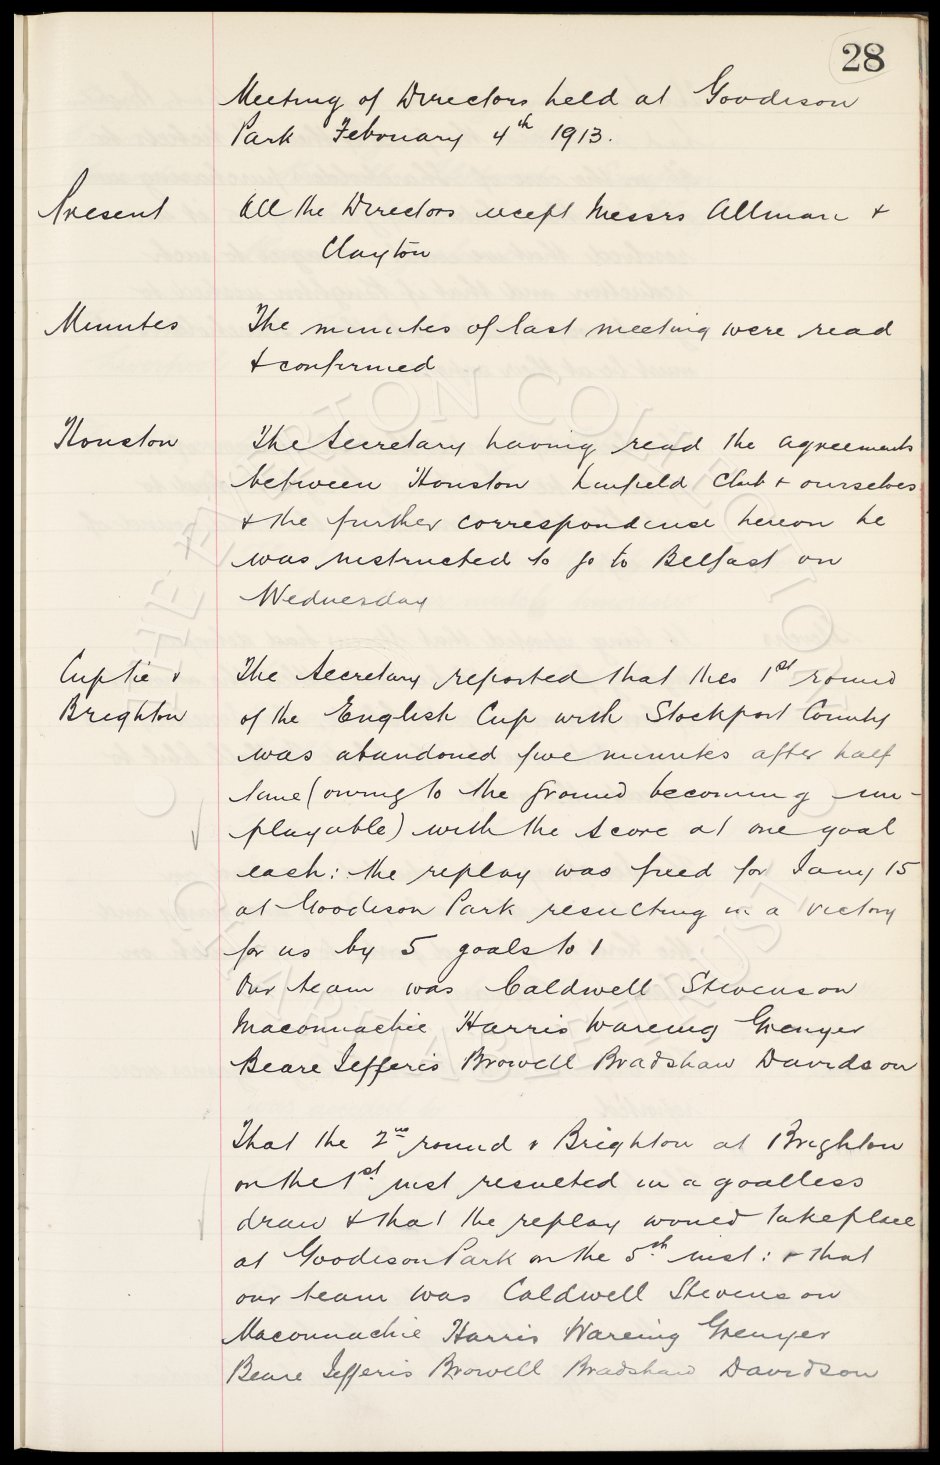 28
Meeting of Directors held at Goodison
Park February 4th 1913.
Present
All the Directors except Messrs Allman +
Clayton
Minutes
The minutes of last meeting were read
+ confirmed
Houston
The Secretary having read the agreements
between Houston Linfield Club + ourselves
+ the further correspondence hereon he
was instructed to go to Belfast on
Wednesday
Cuptie v
Brighton
The Secretary reported that the 1st round
of the English Cup with Stockport County
was abandoned five minutes after half
time (owing to the ground becoming un-
playable) with the score at one goal
each: the replay was fixed for Jany 15
at Goodison Park resulting in a victory
for us by 5 goals to 1
Our team was Caldwell Stevenson
Maconnachie Harris Wareing Grenyer
Beare Jefferis Browell Bradshaw Davidson
That the 2nd round v Brighton at Brighton
on the 1st inst resulted in a goalless
draw + that the replay would take place
at Goodison Park on the 5th inst: + that
our team was Caldwell Stevenson
Maconnachie Harris Wareing Grenyer
Beare Jefferis Browell Bradshaw Davidson
THE EVERTON COLLECTION